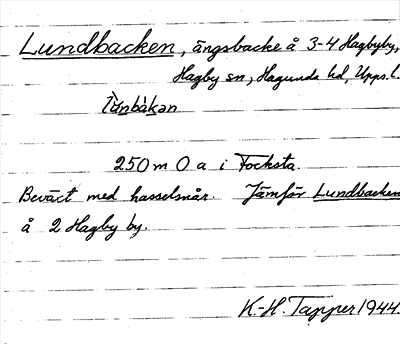 Lundbacken, ängsbacke å 3-4 Hagbyby,
Hagby sn, Hagunda hd, Upps. l.
250 m O a i Focksta.
Beväxt med hasselsnår. Jämför Lundbacken
å 2 Hagby by.
K.-H. Tapper 1944.